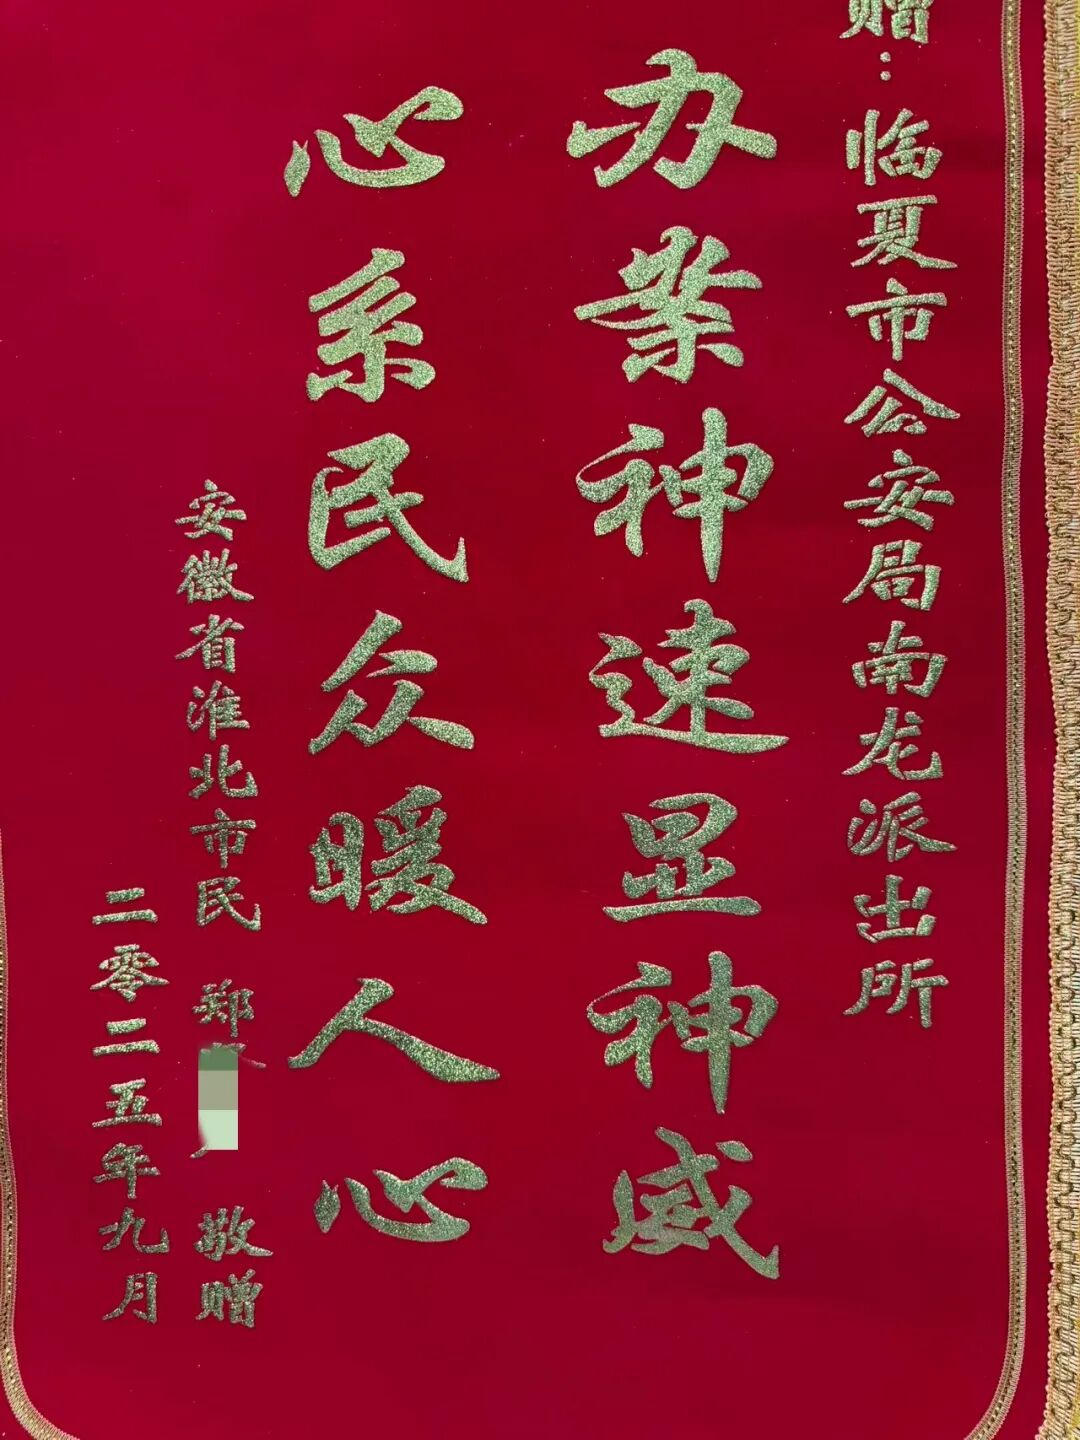 赠：临夏市公安局南龙派出所
办業神速显神威
心系民众暖人心
安徽省淮北市民 郑 敬赠
二零二五年九月